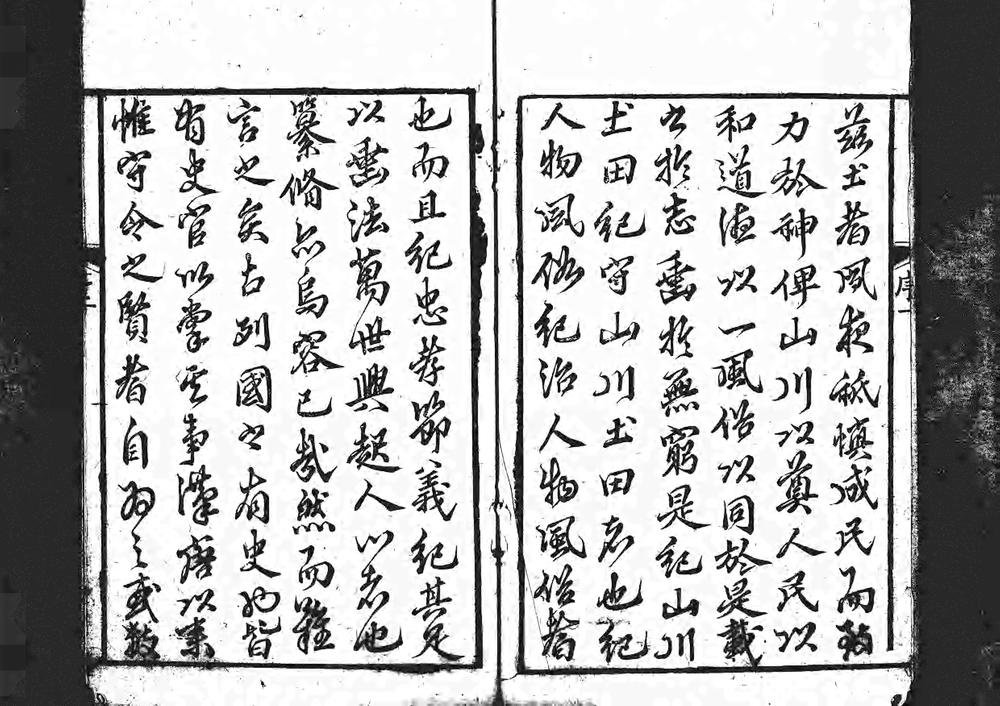 茲土者夙夜祗慎成民而致
力於神俾山川以奠人民以
和道德以一風俗以同於是載
之於志垂於無窮是紀山川
土田紀守山川土田者也紀
人物風俗紀治人物風俗者
也而且紀忠孝節義紀其足
以垂法萬世興起人心者也
纂脩亦烏容已哉然而難
言之矣古列國之有史也皆
有史官以掌其事漢唐以來
惟守令之賢者自為之或數
序